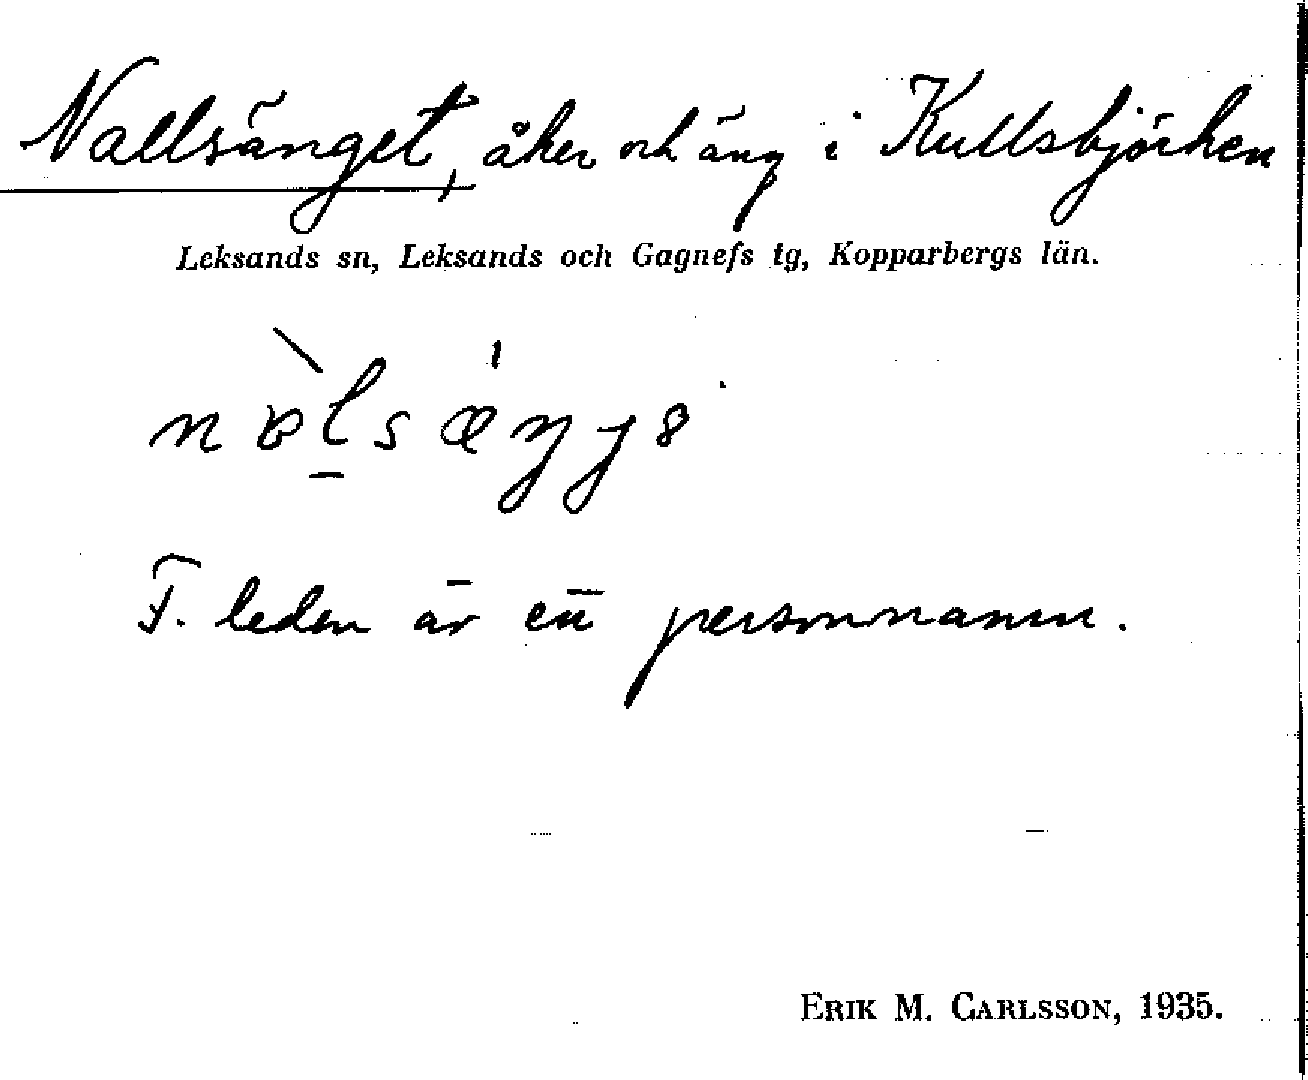 Nallsänget, åker och äng i Kullsbjörken
Leksands sn, Leksands och Gagnefs tg, Kopparbergs län.
F. leden är ett personnamn.
ERIK M. CARLSSON, 1935.